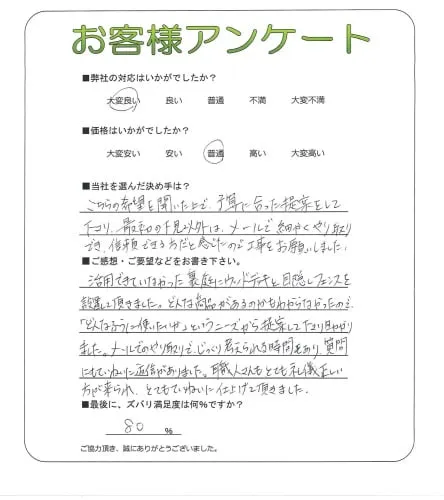 お客様アンケート
■弊社の対応はいかがでしたか?
大変良い 良い 普通 不満 大変不満
■価格はいかがでしたか?
大変安い 安い 普通 高い 大変高い
■当社を選んだ決め手は?
こちらの希望を聞いた上で、予算に合った提案をして
下さり、最初の下見以外は、メールで細やかくやり取り
でき、信頼できる方だと感じたので工事をお願いしました。
■ご感想・ご要望などをお書き下さい。
活用できていなかった裏庭にウッドデッキと目隠しフェンスを
設置して頂きました。どんな商品があるのかもわからなかったので、
「どんなふうに使いたいか」というニーズから提案して下さり助かり
ました。メールでのやり取りで、じっくり考えられる時間もあり、質問
にもていねいに返信がありました。職人さんもとても礼儀正しい
方が来られ、とてもていねいに仕上げて頂きました。
■最後に、ズバリ満足度は何%ですか?
80 %
ご協力頂き、誠にありがとうございました。